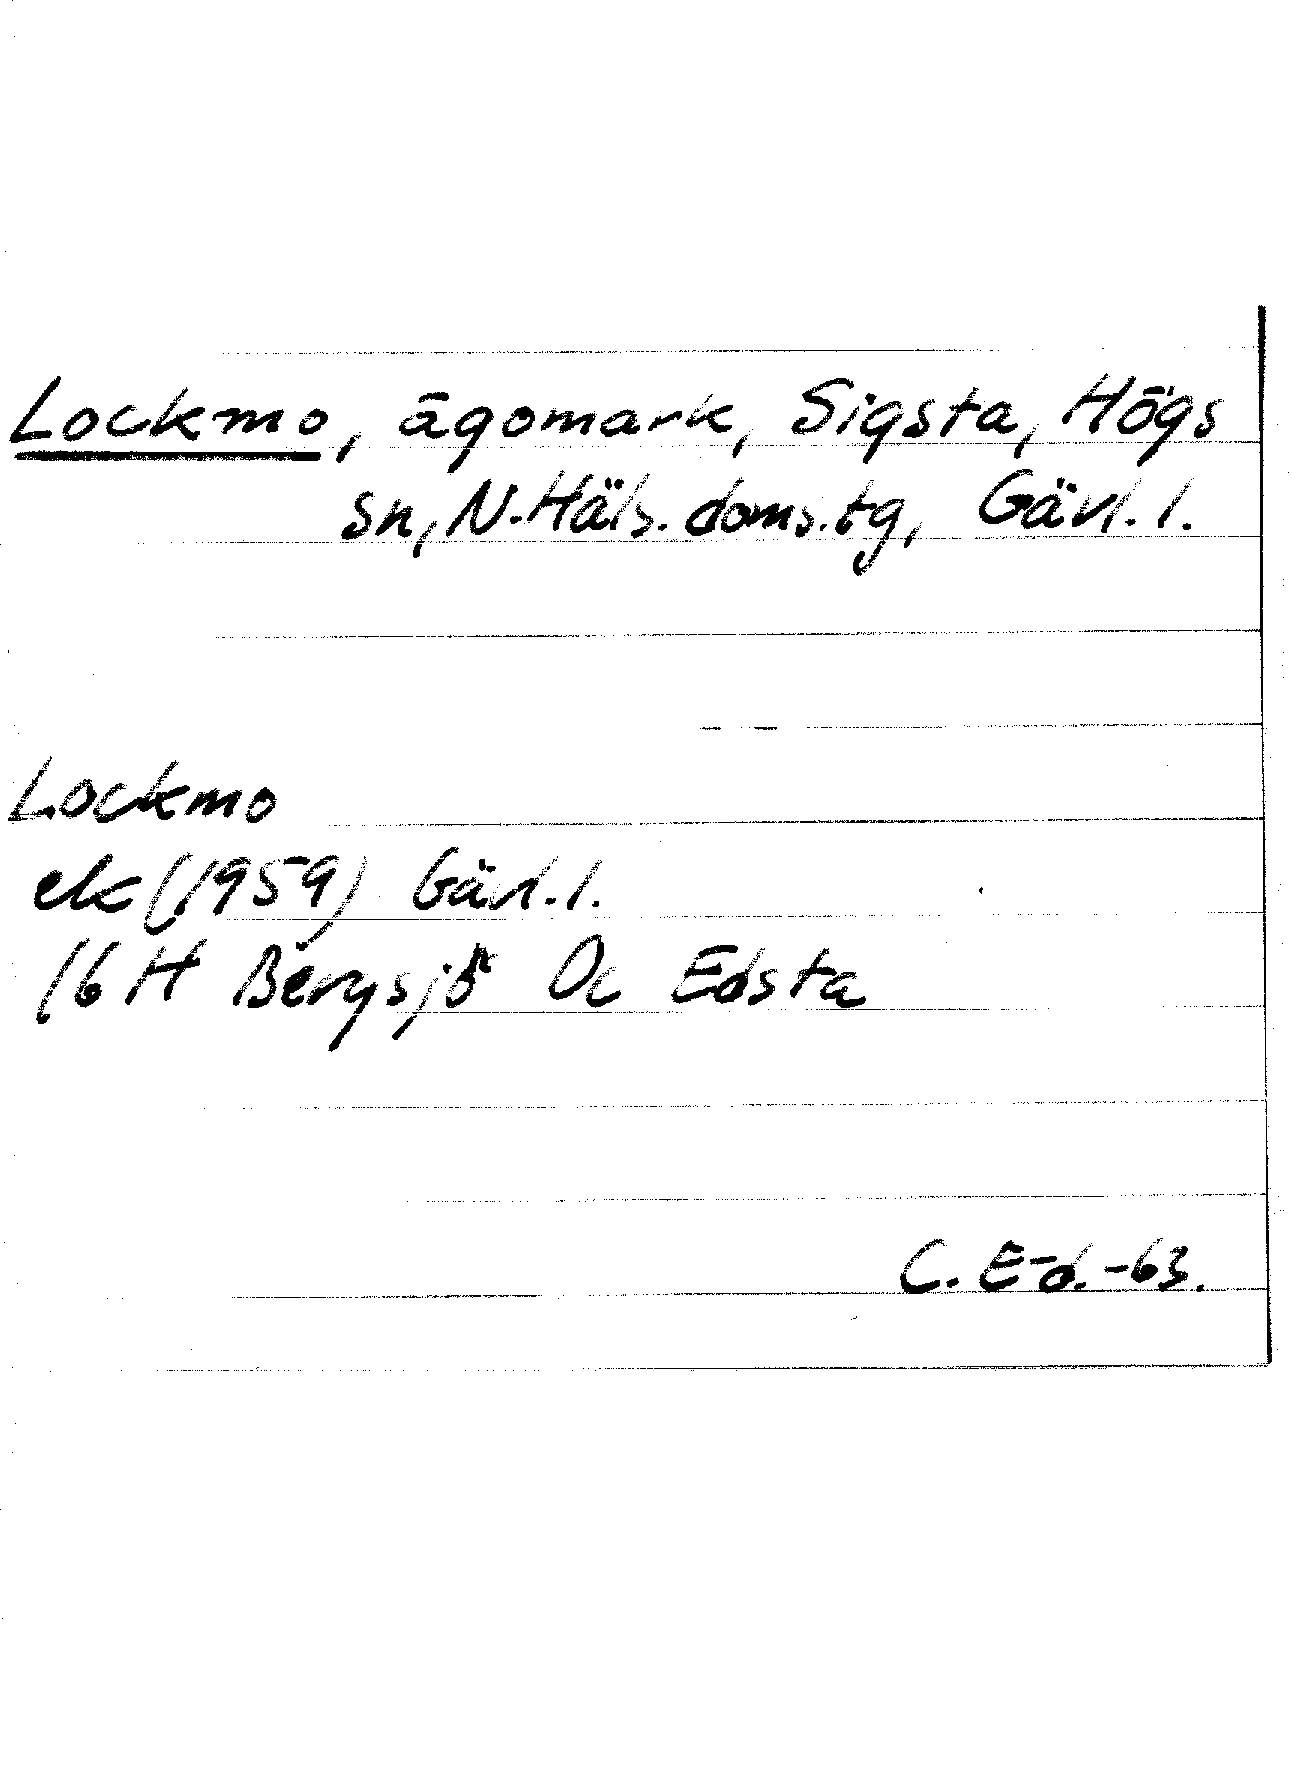 Lockmo, ägomark, Sigsta, Högs
sn, N. Häls. doms.tg, Gävl. l.
Lockmo
ek (1959) Gävl. l.
16 H Bergsjö Oc Edsta
C. E-d. -63.